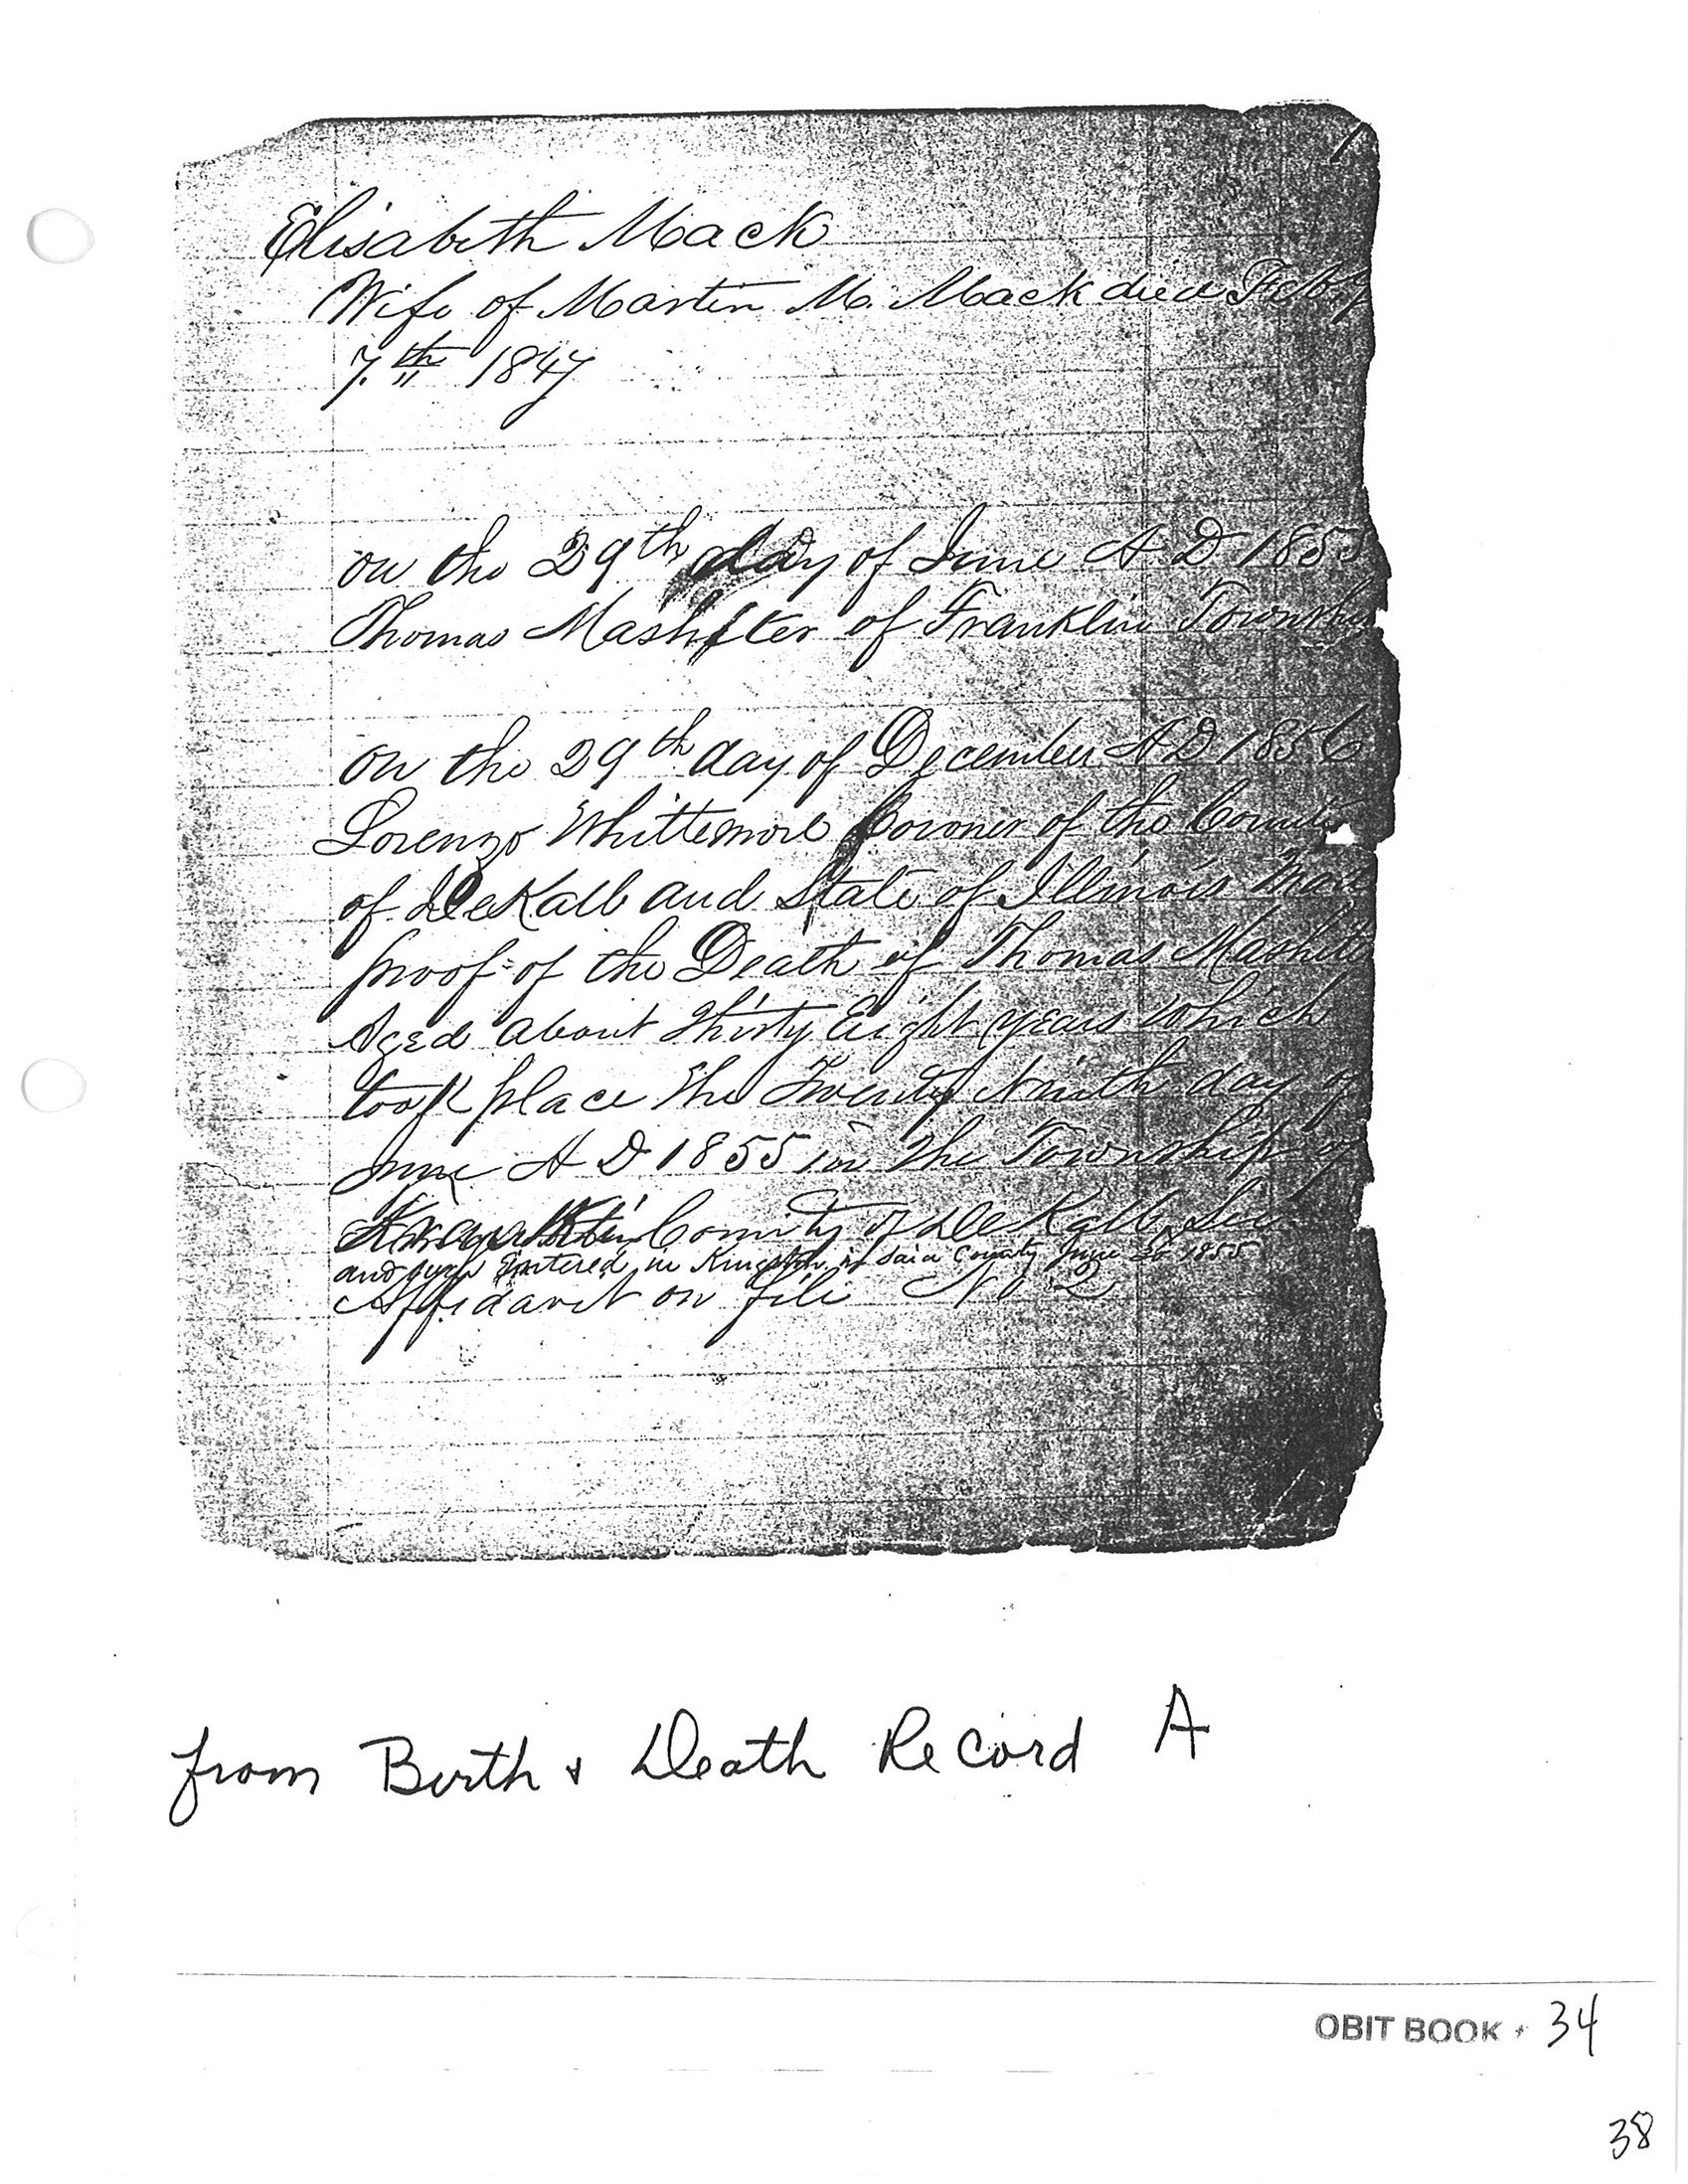 Elisabeth Mack
Wife of Martin M. Mack died Feby
7.th 1847
on the 29th day of June A D 1855
Thomas Mashiter of Franklin Townsh
on the 29th day of December A D 1856
Lorenzo Whittemore Coroner of the County
of DeKalb and State of Illinois Made
proof of the Death of Thomas Mashite
Aged about Thirty Eight years which
took place the Twenty Ninth day of
June A D 1855 in the Township of
County of DeKalb
and was Intered in Kingston in Said County June 30 1855
Affidavit on file No 2
from Birth & Death Record A
OBIT BOOK 34
38